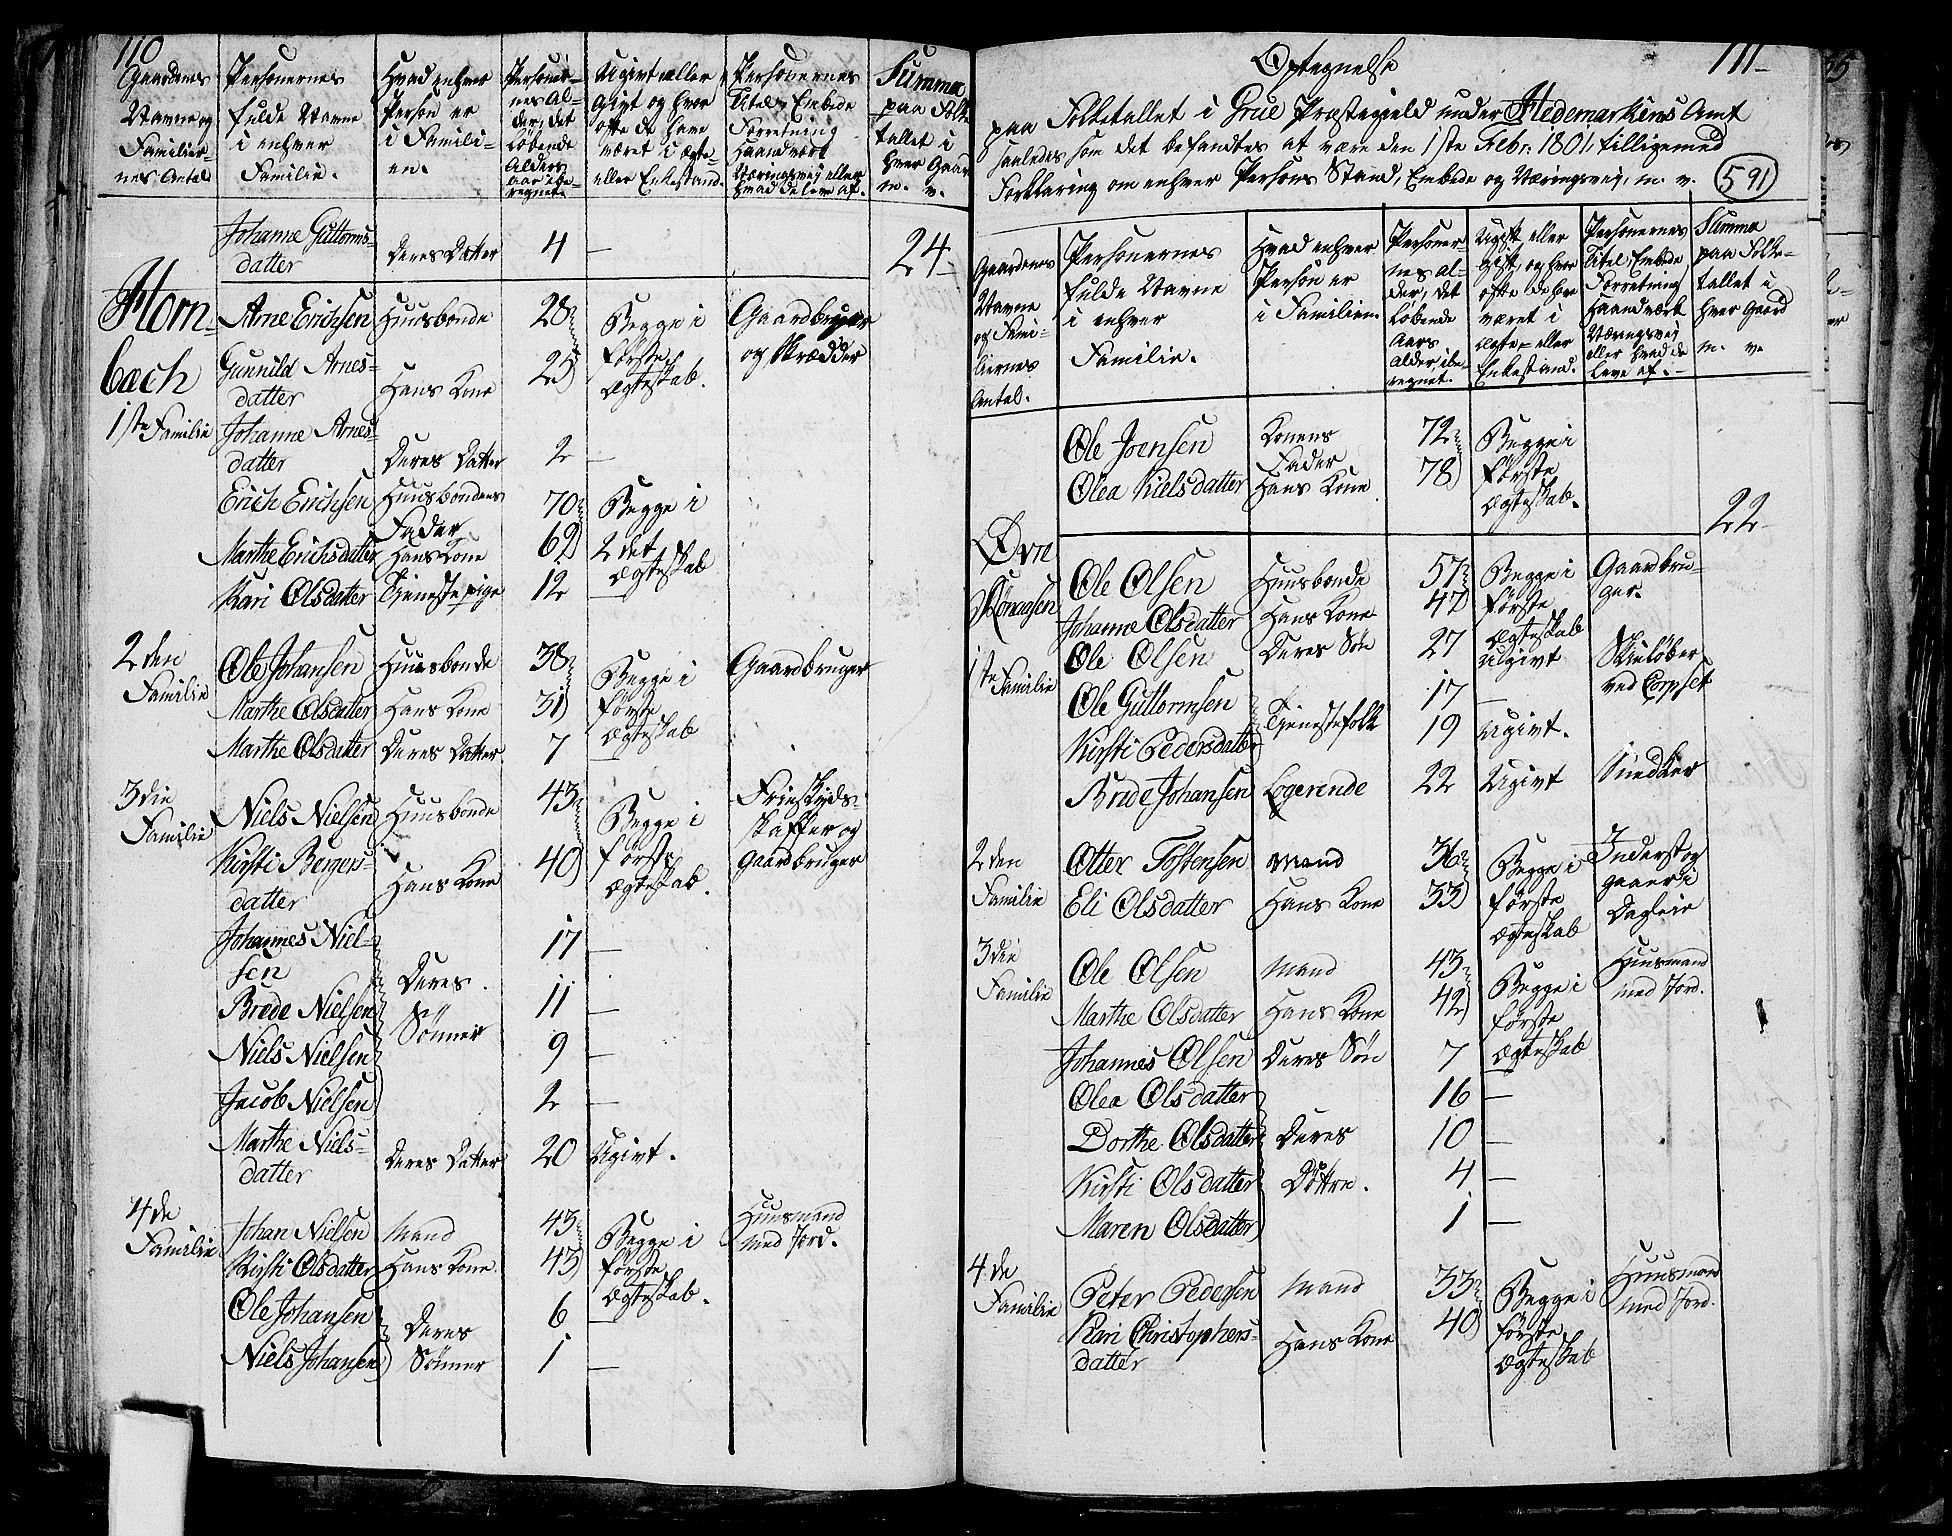 110
Gaardenes Navne og Familier- nes Antal
Personernes fulde Navne i enhver Familie.
Hvad enhver Person er i Famili- en.
Personer- nes Al- der, det løbende Alders aar ibe- regnet.
Ugivt eller Givt og hvor ofte de have været i Ægte- eller Enkestand.
Personernes Titel, Embede Forretning Haandværk Næringsvej eller hvad de leve af.
Summa paa Folke tallet i hver Gaard m. v.
Johanne Guttorms- datter Deres Datter 4 — 24-
Horn- bæch
1ste Familie
Arne Erichsen Huusbonde 28 Begge i første Ægteskab. Gaardbruger og Skrædder
Gunnild Arnes- datter Hans Kone 25
Johanne Arnes- datter Deres Datter 2 —
Erich Erichsen Huusbondens Fader 70 Begge i 2det Ægteskab
Marthe Erichsdatter Hans Kone 62
Kari Olsdatter Tieneste pige 12 —
2den Familie
Ole Johansen Huusbonde 38 Begge i første Ægteskab Gaardbruger
Marthe Olsdatter Hans Kone 31
Marthe Olsdatter Deres Datter 7 —
3die Familie
Niels Nielsen Huusbonde 43 Begge i første Ægteskab. Frieskyds- skaffer og Gaardbruger
Kirsti Bergers- datter Hans Kone 40
Johannes Niel- sen Deres Sønner 17 —
Brede Nielsen 11 —
Niels Nielsen 9 —
Jacob Nielsen 2 —
Marthe Niels- datter Deres Datter 20 Ugivt.
4de Familie
Johan Nielsen Mand 43 Begge i første Ægteskab. Huusmand med Jord.
Kirsti Olsdatter Hans Kone 43
Ole Johansen Deres Sønner 6 —
Niels Johansen 1 —
111-
Optegnelse
paa Folketallet i Grue Præstegield under Hedemarkens Amt
saaledes som det befandtes at være den 1ste Febr: 1801, tilligemed
Forklaring om enhver Persons Stand, Embede og Næringsvej, m. v.
591
Gaardenes Navne og Fami- liernes Antal.
Personernes fulde Navne i enhver Familie.
Hvad enhver Person er i Familien.
Personer- nes Al- der, det løbende Aars Alder ibe- regnet.
Ugift eller gift, og hvor ofte de have været i Ægte- eller Enkestand.
Personernes Titel, Embede Forretning Haandværk Næringsvej eller hvad de leve af.-
Summa paa Folke- tallet i hver Gaard m. v.
Ole Joensen Konens Fader 72 Begge i første Ægteskab.
Olea Kielsdatter Hans Kone 78
22-
Øvr
1ste Familie
Ole Olsen Huusbonde 57 Begge i første Ægteskab Gaardbru- ger.
Johanne Olsdatter Hans Kone 47
Ole Olsen Deres Søn 27 Ugivt Skieløber ved Corpset
Ole Guttormsen Tienestefolk 17 —
Kirsti Pedersdatter 19 Ugivt.
Brede Johansen Logerende 22 Ugivt Snedker
2den Familie
Otter Tostensen Mand 36 Begge i første Ægteskab Inderst og gaaer i Dagleie
Eli Olsdatter Hans Kone 33
3die Familie
Ole Olsen Mand 43 Begge i første Ægteskab Huusmand med Jord.
Marthe Olsdatter Hans Kone 42
Johannes Olsen Deres Søn 7
Olea Olsdatter Deres Døttre. 16 —
Dorthe Olsdatter 10 —
Kirsti Olsdatter 4 —
Maren Olsdatter 1 —
4de Familie
Peter Pedersen Mand 33 Begge i første Ægteskab Huusmand med Jord.
Kari Christophers- datter Hans Kone 40